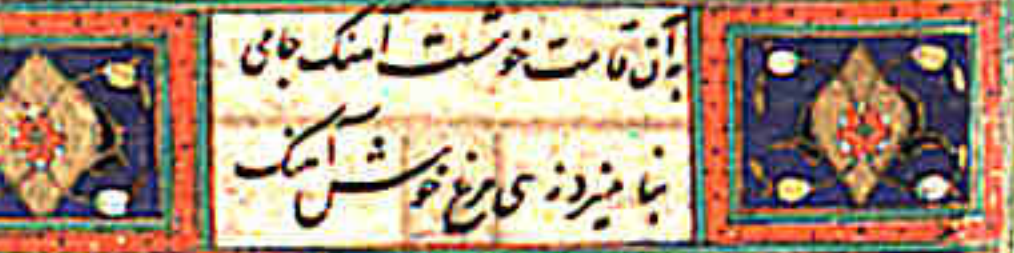 بآن قامت خوشست آهنگ جامی
بنامیزد زهی مرغ خوش آهنگ